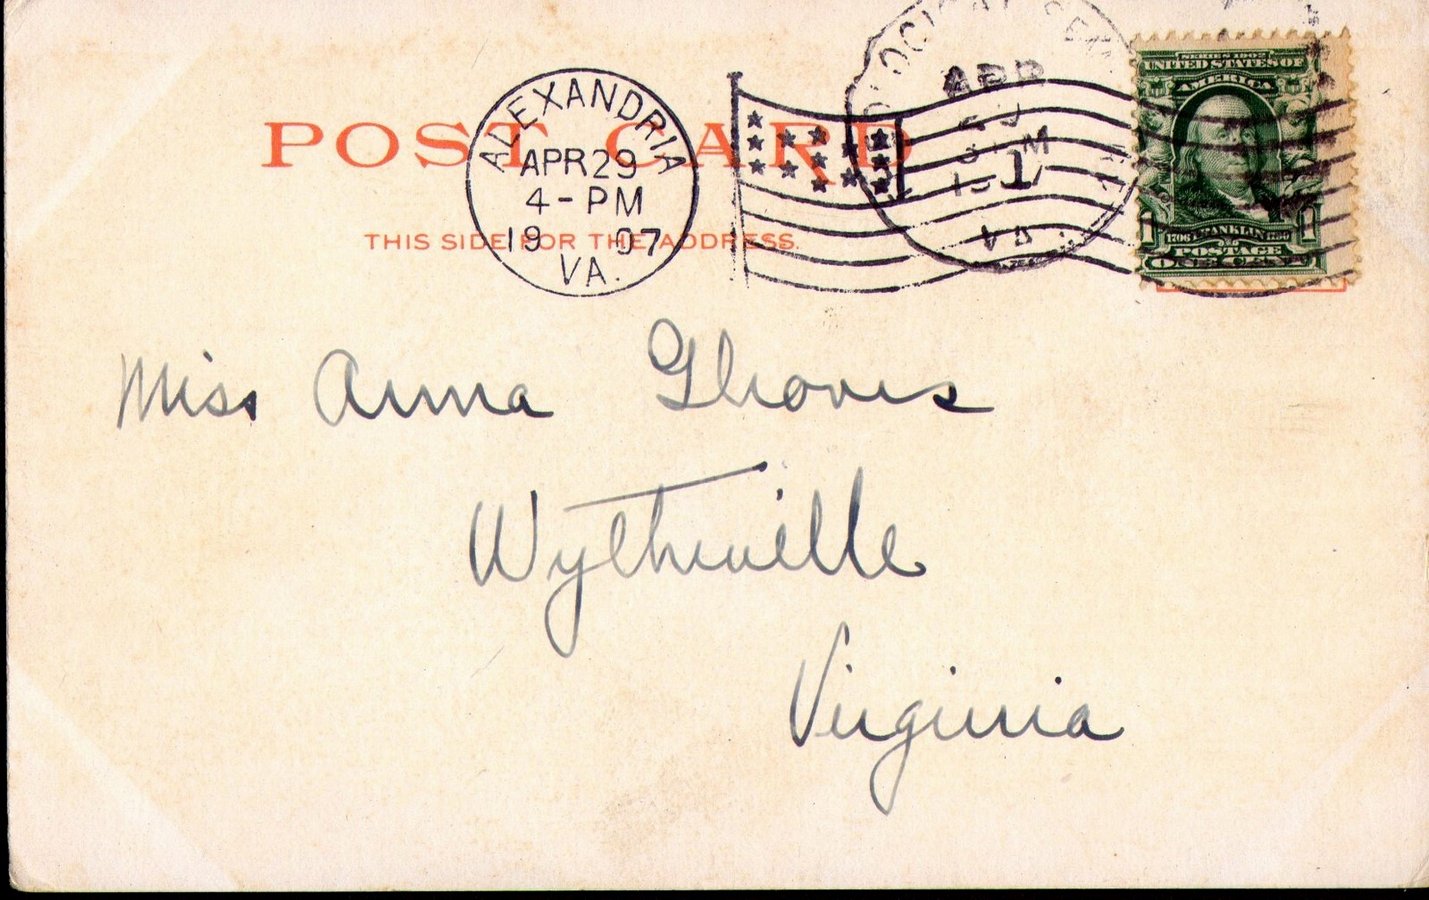 POST CARD
THIS SIDE FOR THE ADDRESS.
ALEXANDRIA
APR 29
4-PM
1907
VA.
APR
M
1
VA.
SERIES 1902
UNITED STATES OF
AMERICA
1706 FRANKLIN 1790
POSTAGE
Miss Anna
Wytheville
Virginia